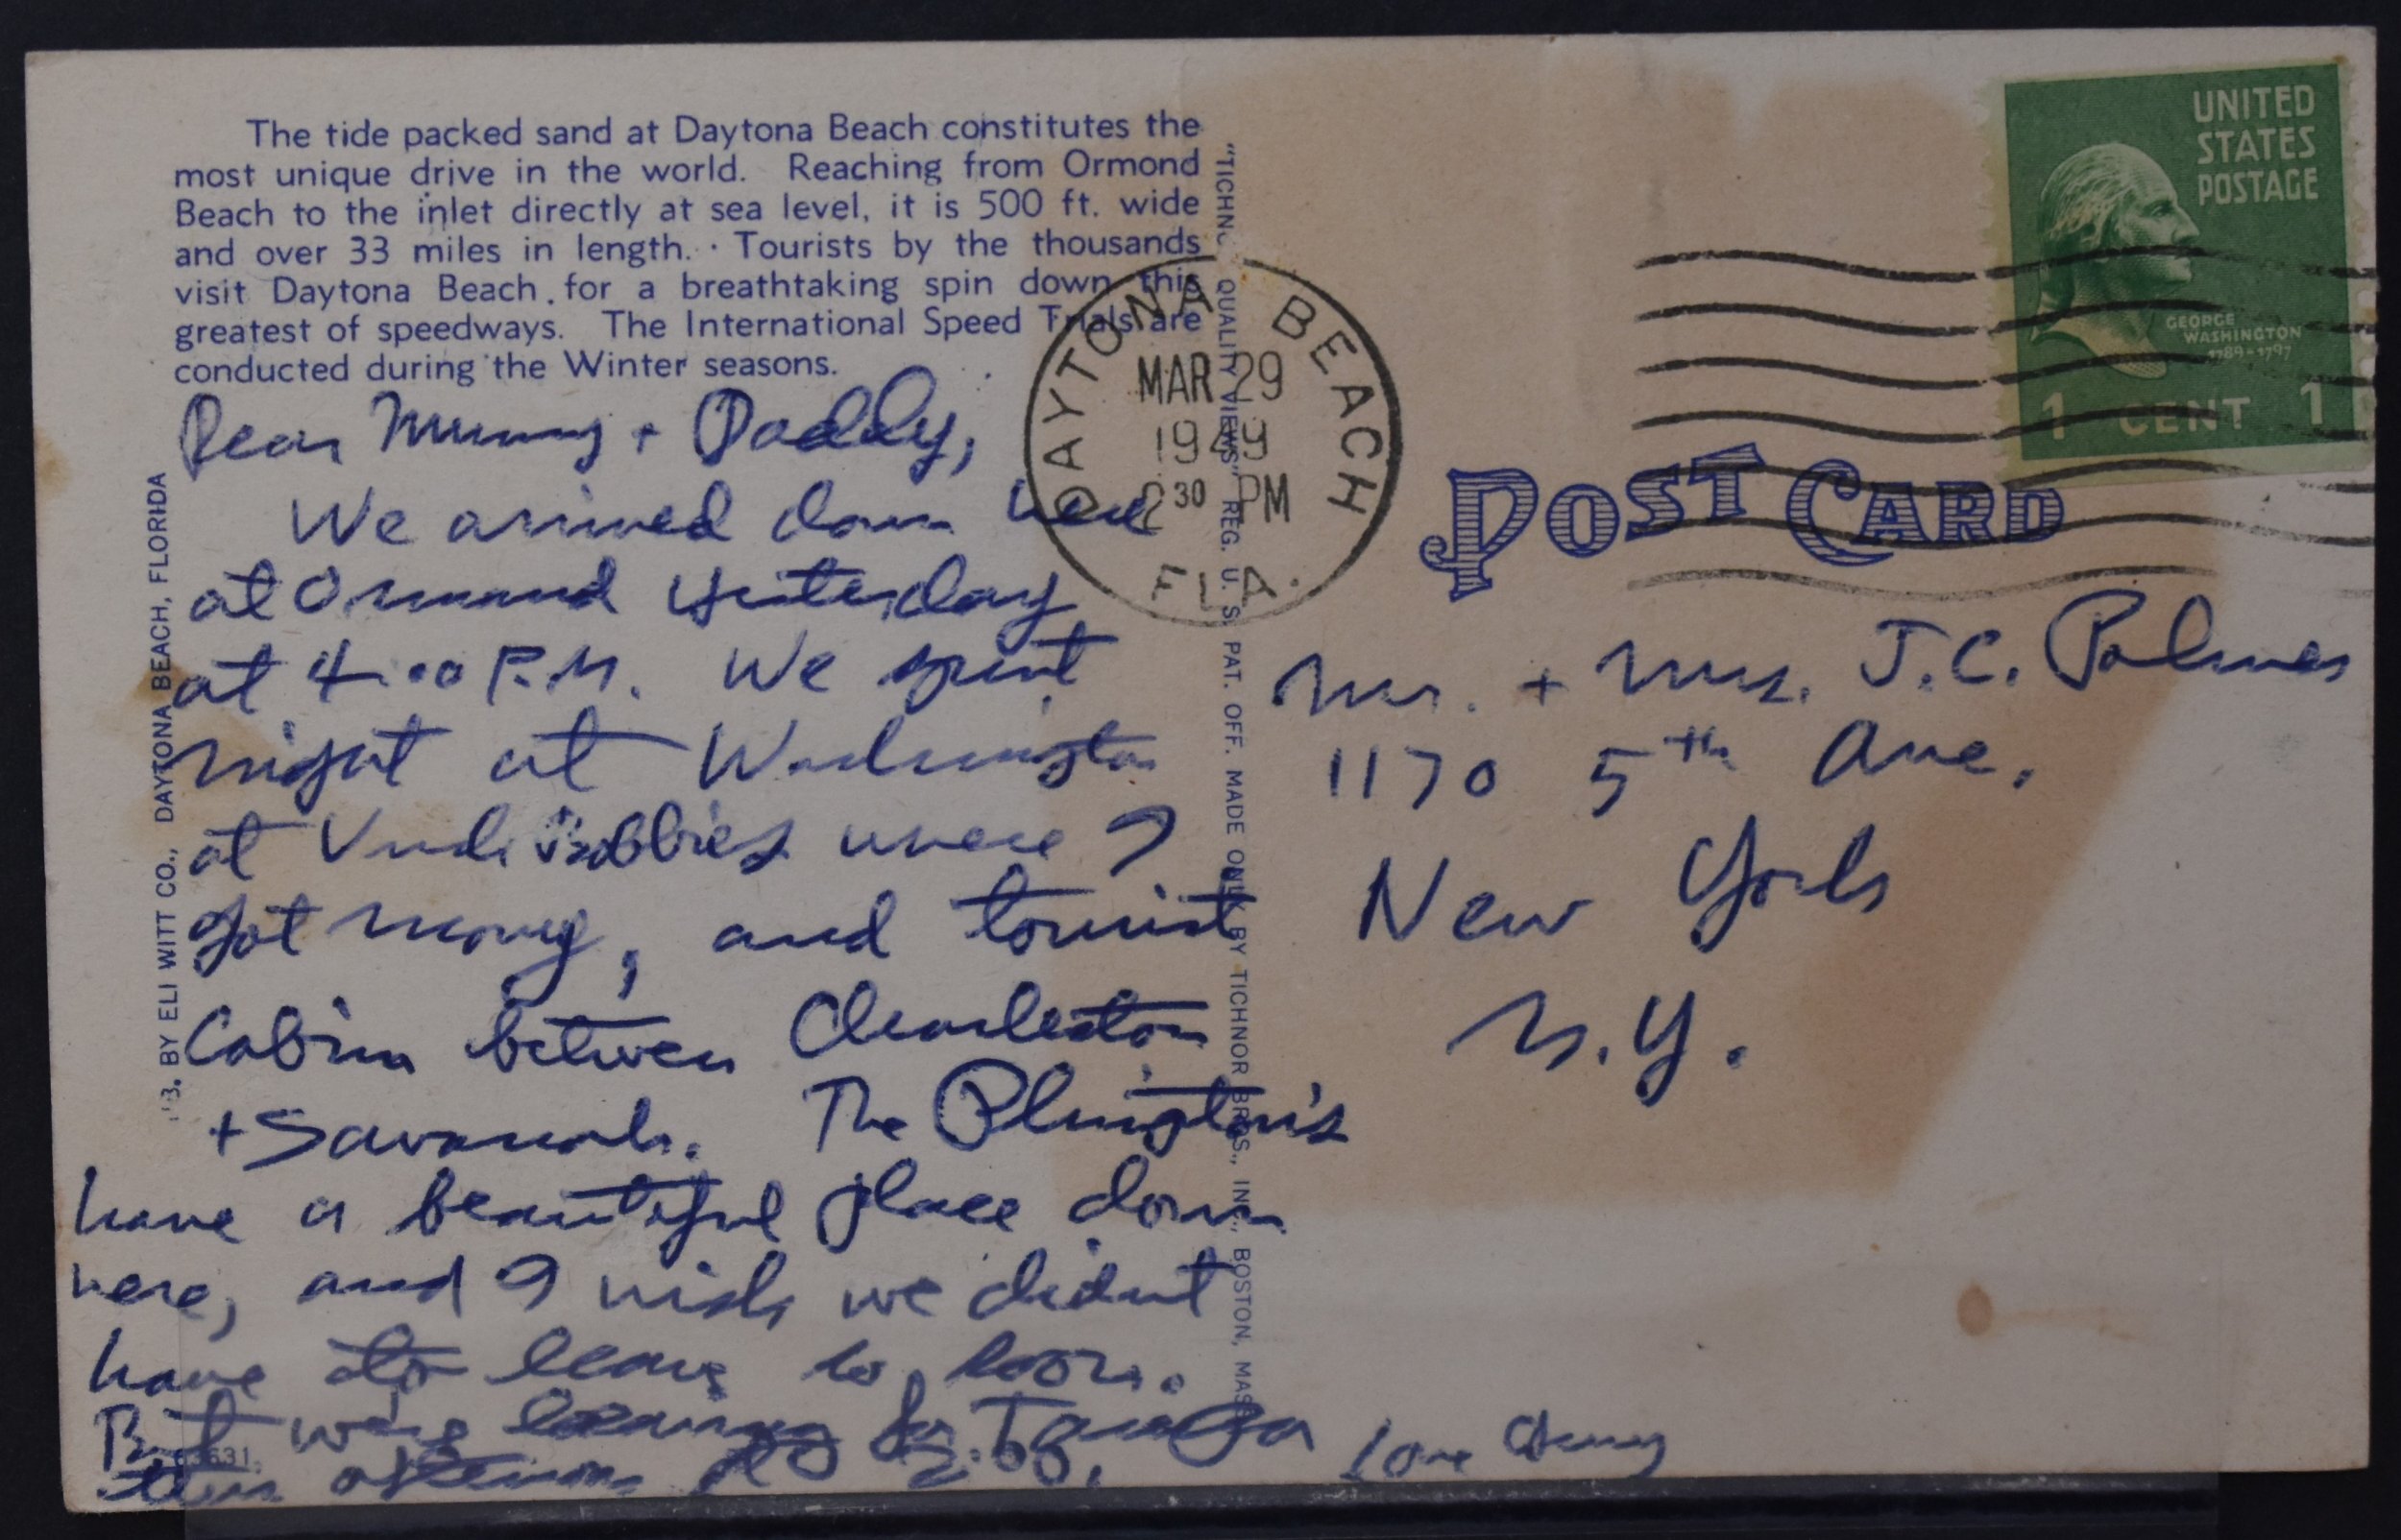 The tide packed sand at Daytona Beach constitutes the
most unique drive in the world. Reaching from Ormond
Beach to the inlet directly at sea level, it is 500 ft. wide
and over 33 miles in length. Tourists by the thousands
visit Daytona Beach for a breathtaking spin down this
greatest of speedways. The International Speed Trials are
conducted during the Winter seasons.
Dear Mummy + Daddy,
We arrived down here
at Ormond yesterday
at 4:00 P.M. We spent
night at Washington
at where I
got money, and tourist
Cabin between Charleston
+ Savanah. The
have a beautiful place down
here, and I wish we didnt
have to leave so soon.
But were leaving for Tampa
this afternoon
Love
B. BY ELI WITT CO., DAYTONA BEACH, FLORIDA
3631
"TICHNOR QUALITY VIEWS" REG. U. S. PAT. OFF. MADE ONLY BY TICHNOR BROS., INC., BOSTON, MASS.
DAYTONA BEACH
MAR 29
1949
2 30 PM
FLA.
UNITED
STATES
POSTAGE
GEORGE
WASHINGTON
1789-1797
1 CENT 1
POST CARD
Mr. + Mrs. J.C. Palmer
1170 5th Ave.
New York
N.Y.